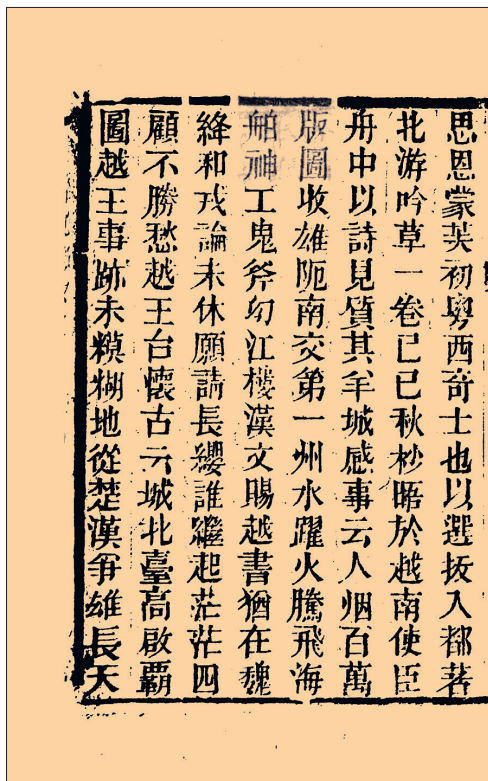 思恩蒙芙初粤西奇士也以選拔入都著
北游吟草一卷已巳秋杪晤於越南使臣
舟中以詩見質其羊城感事云人烟百萬
版圖收雄阨南交第一州水躍火騰飛海
舶神工鬼斧幻江樓漢文賜越書猶在魏
絳和戎論未休願請長纓誰繼起茫茫四
顧不勝愁越王台懷古云城北臺高啟覇
圖越王事跡未糢糊地從楚漢爭雄長天